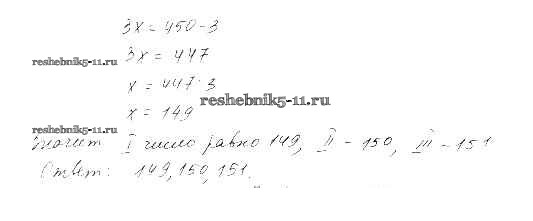 3x = 450-3
3x = 447
reshebnik5-11.ru
x = 447:3
reshebnik5-11.ru
x = 149
reshebnik5-11.ru
Значит I число равно 149, II - 150, III - 151
Ответ: 149, 150, 151.